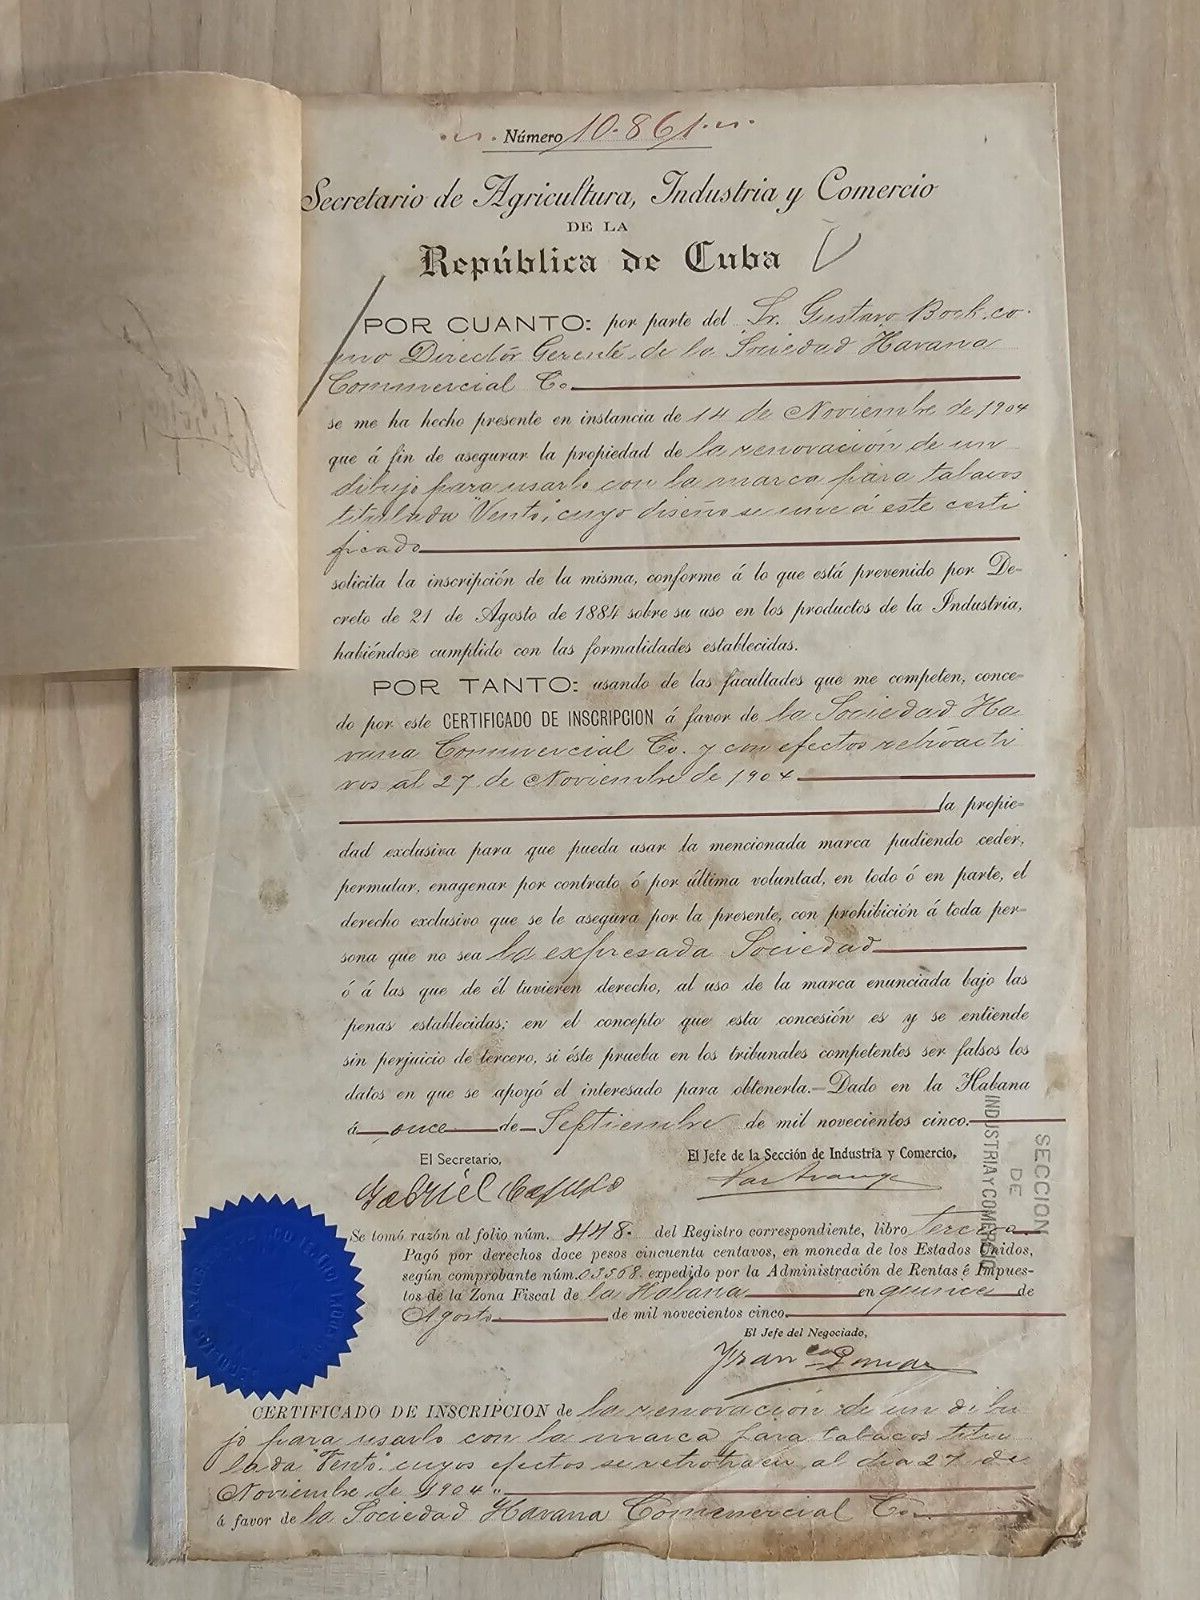 Número 10.861.
Secretario de Agricultura, Industria y Comercio
DE LA
República de Cuba
POR CUANTO: por parte del Sr. Gustavo Bock co-
mo Director Gerente de la Sociedad Havana
Commercial Co.
se me ha hecho presente en instancia de 14 de Noviembre de 1904
que á fin de asegurar la propiedad de la renovación de un
dibujo para usarlo con la marca para tabacos
titulada "Vento", cuyo diseño se une á este certi
ficado
solicita la inscripción de la misma, conforme á lo que está prevenido por De-
creto de 21 de Agosto de 1884 sobre su uso en los productos de la Industria,
habiéndose cumplido con las formalidades establecidas.
POR TANTO: usando de las facultades que me competen, conce-
do por este CERTIFICADO DE INSCRIPCION á favor de la Sociedad Ha
vana Commercial Co. y con efectos retroacti
vos al 27 de Noviembre de 1904
la propie-
dad exclusiva para que pueda usar la mencionada marca pudiendo ceder,
permutar, enagenar por contrato ó por última voluntad, en todo ó en parte, el
derecho exclusivo que se le asegura por la presente, con prohibición á toda per-
sona que no sea la expresada Sociedad
ó á las que de él tuvieren derecho, al uso de la marca enunciada bajo las
penas establecidas; en el concepto que esta concesión es y se entiende
sin perjuicio de tercero, si éste prueba en los tribunales competentes ser falsos los
datos en que se apoyó el interesado para obtenerla.—Dado en la Habana
á once de Septiembre de mil novecientos cinco.
El Secretario,
El Jefe de la Sección de Industria y Comercio,
Gabriel
SECCION
DE
INDUSTRIA Y COMERCIO
Se tomó razón al folio núm. 448. del Registro correspondiente, libro tercero
Pagó por derechos doce pesos cincuenta centavos, en moneda de los Estados Unidos,
según comprobante núm. 03568. expedido por la Administración de Rentas é Impues-
tos de la Zona Fiscal de la Habana en quince de
Agosto de mil novecientos cinco.
El Jefe del Negociado,
CERTIFICADO DE INSCRIPCION de la renovación de un dibu
jo para usarlo con la marca para tabacos titu
lada "Vento" cuyos efectos se retrotraen al día 27 de
Noviembre de 1904
á favor de la Sociedad Havana Commercial Co.